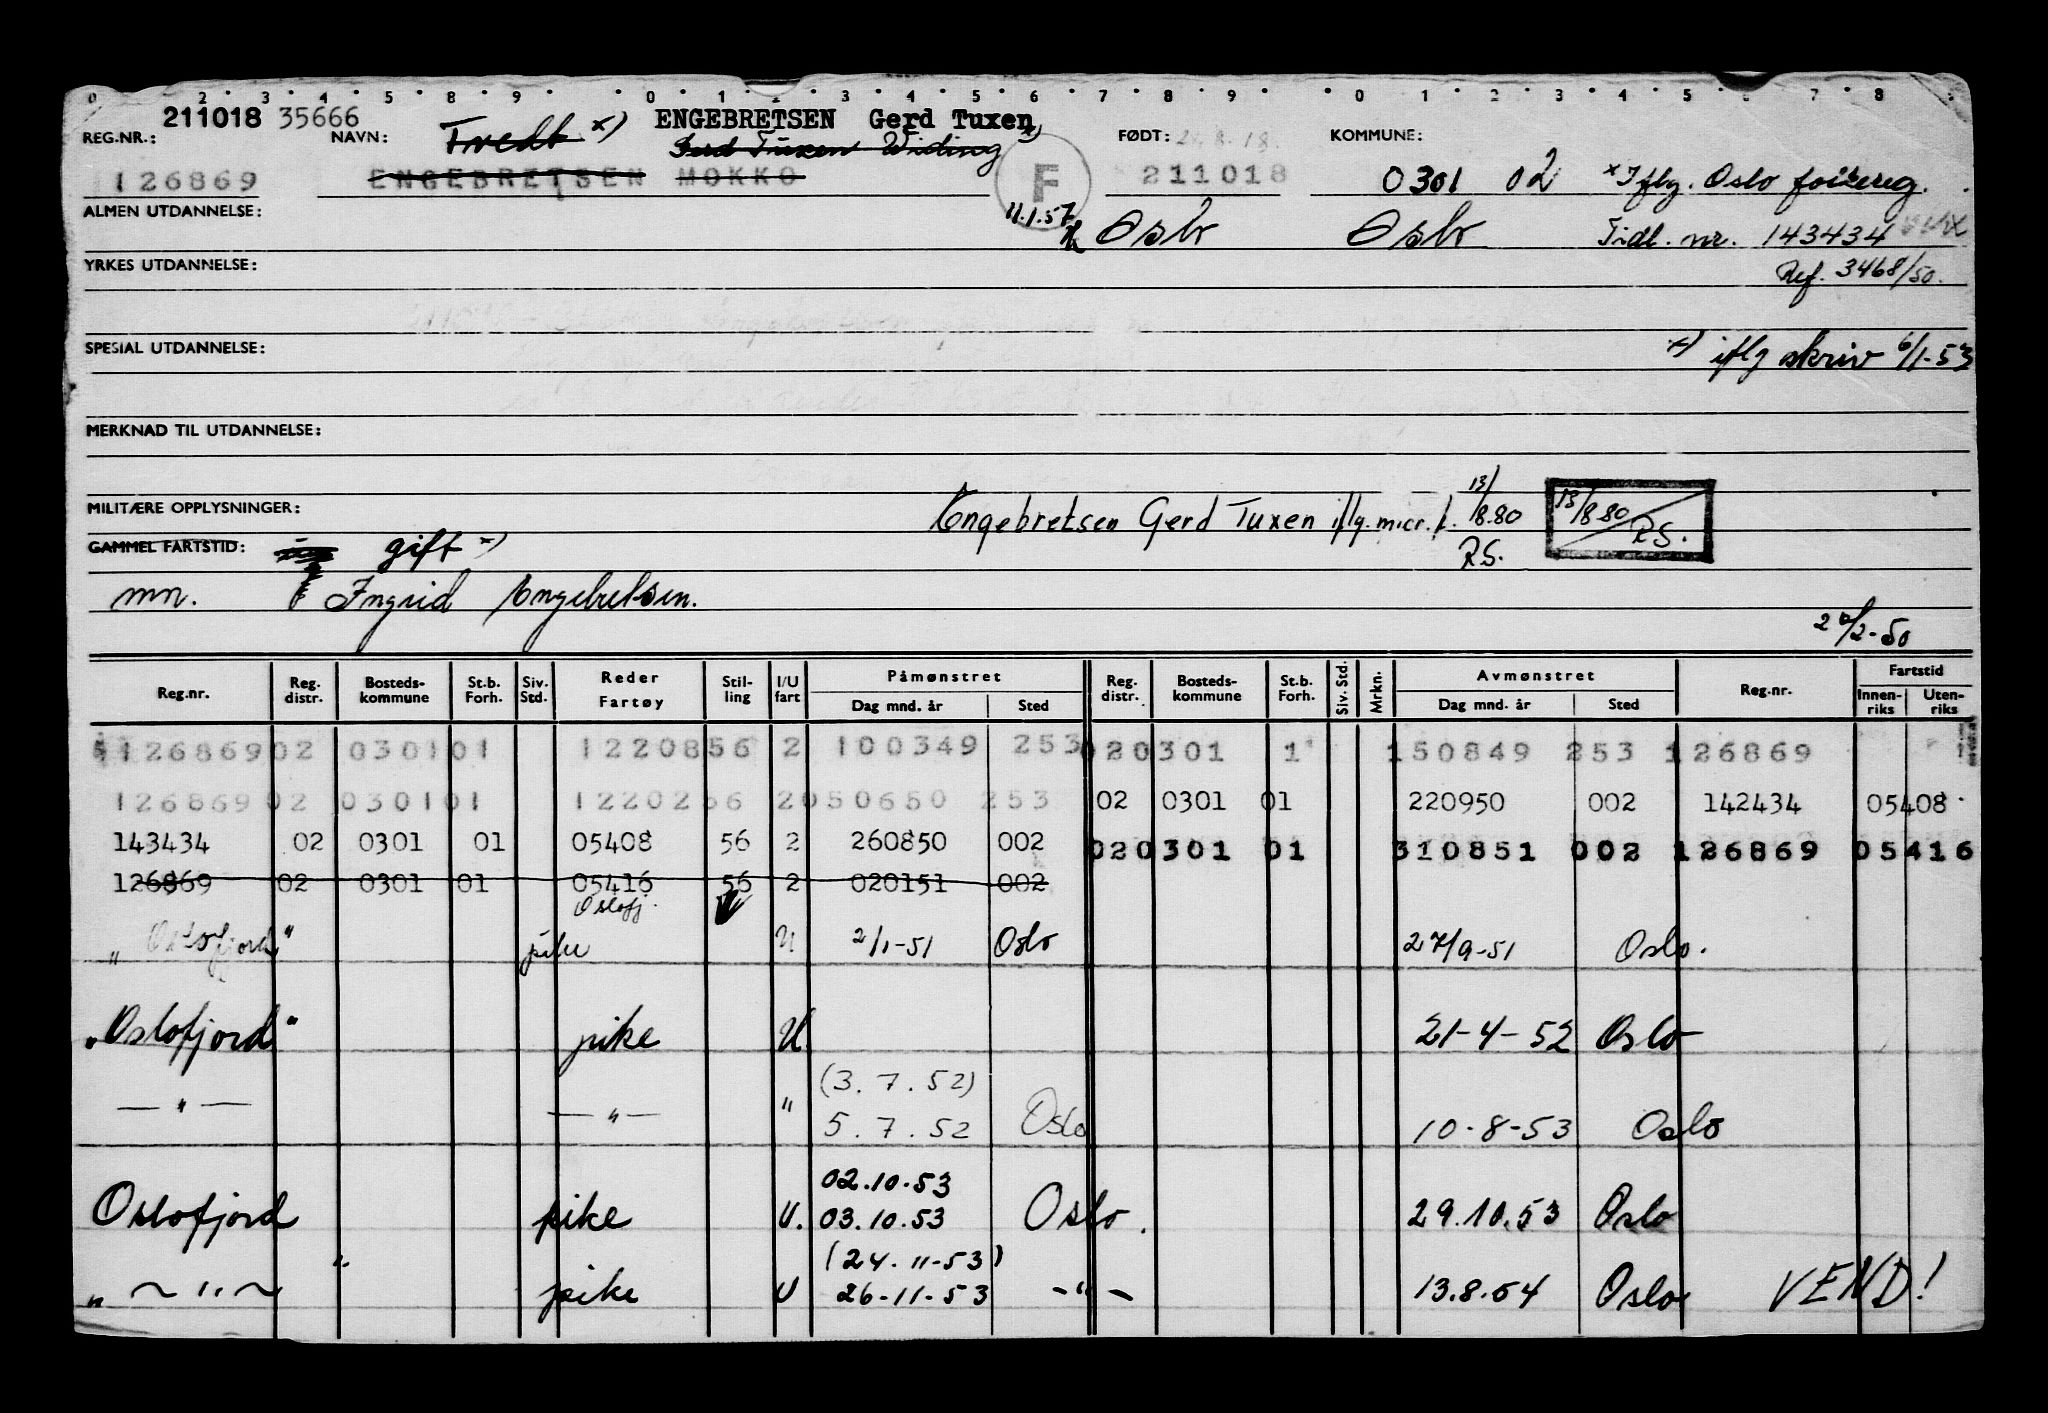 0 2 3 4 5 8 9 0 1 2 3 4 5 6 7 8 9 0 1 2 3 4 5 6 7 8 9
211018 35666 ENGEBRETSEN Gerd Tuxen
REG.NR.: NAVN: Tvedt x) Gerd Tuxen Widing x) FØDT: KOMMUNE:
126869 ENGEBRETSEN MOKKO F 211018 0301 02 x Iflg. Oslo folkereg.
ALMEN UTDANNELSE: 11.1.57 Oslo Oslo Tidl. nr. 143434
YRKES UTDANNELSE: Ref. 3468/50.
SPESIAL UTDANNELSE: x) iflg skriv 6/1-53
MERKNAD TIL UTDANNELSE:
MILITÆRE OPPLYSNINGER: Engebretsen Gerd Tuxen iflg. micr.f. 13/8.80 RS. 13/8.80 RS.
GAMMEL FARTSTID: gift x)
mn. Ingrid Engebretsen.
2%-50
Reg.nr. Reg. distr. Bosteds-kommune St.b. Forh. Siv. Std. Reder Fartøy Stil-ling I/U fart Påmønstret Dag mnd. år Sted Reg. distr. Bosteds-kommune St.b. Forh. Siv. Std. Mrkn. Avmønstret Dag mnd. år Sted Reg.nr. Fartstid Innen-riks Uten-riks
126869 02 0301 01 12208 56 2 100349 253 02 0301 1 150849 253 126869
126869 02 0301 01 12202 56 2 050650 253 02 0301 01 220950 002 142434 05408
143434 02 0301 01 05408 56 2 260850 002 02 0301 01 310851 002 126869 05416
126869 02 0301 01 05416 56 2 020151 002
Oslofj.
"Oslofjord" pike U 2/1-51 Oslo 27/9-51 Oslo.
"Oslofjord" pike U. 21-4-52 Oslo
(3.7.52)
— " — — " — " 5.7.52 Oslo 10-8-53 Oslo
02.10.53
Oslofjord pike U. 03.10.53 Oslo. 29.10.53 Oslo
(24.11-53)
" ~ " ~ " pike U 26-11-53 - " - 13.8.54 Oslo VEND!